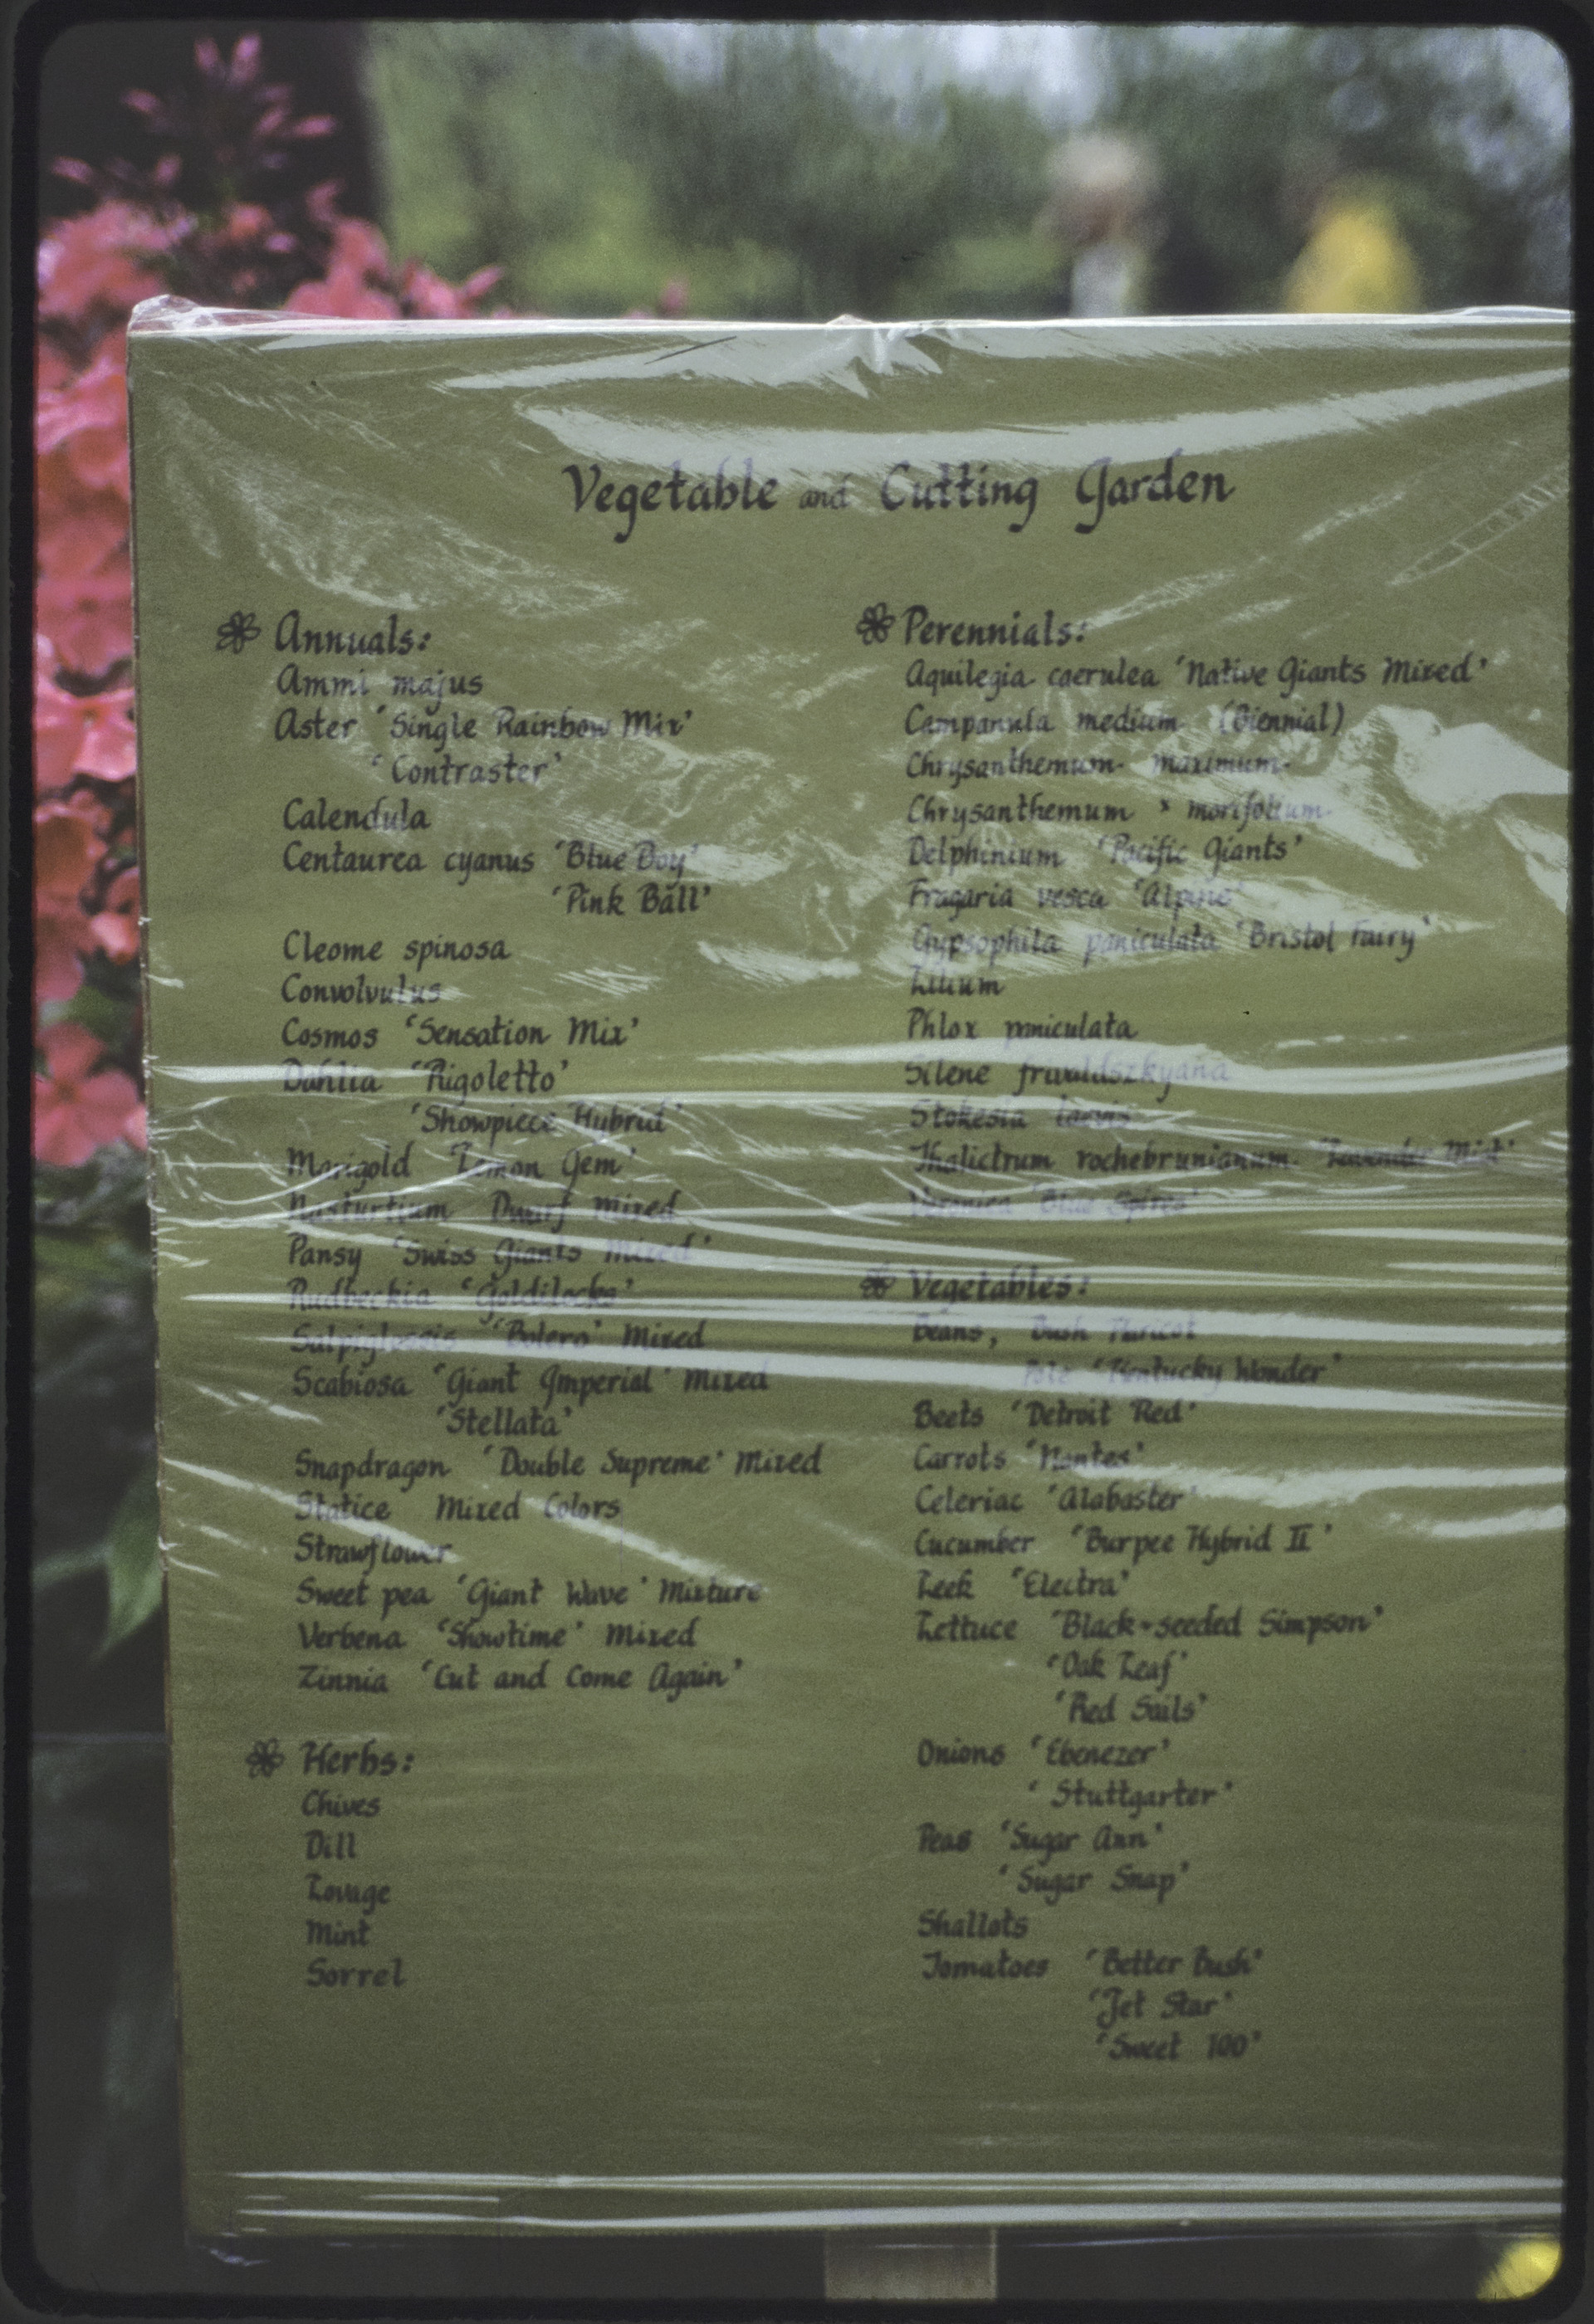 Vegetable and Cutting Garden
Annuals:
Ammi majus
Aster 'Single Rainbow Mix'
'Contraster'
Calendula
Centaurea cyanus 'Blue Boy'
'Pink Ball'
Cleome spinosa
Convolvulus
Cosmos 'Sensation Mix'
Dahlia 'Rigoletto'
'Showpiece Hybrid'
Marigold 'Lemon Gem'
Nasturtium Dwarf Mixed
Pansy 'Swiss Giants Mixed'
Rudbeckia 'Goldilocks'
Salpiglossis 'Bolero' Mixed
Scabiosa 'Giant Imperial' Mixed
'Stellata'
Snapdragon 'Double Supreme' Mixed
Statice Mixed Colors
Strawflower
Sweet pea 'Giant Wave' Mixture
Verbena 'Showtime' Mixed
Zinnia 'Cut and Come Again'
Herbs:
Chives
Dill
Lovage
Mint
Sorrel
Perennials:
Aquilegia caerulea 'Native Giants Mixed'
Campanula medium (Biennial)
Chrysanthemum maximum
Chrysanthemum x morifolium
Delphinium 'Pacific Giants'
Fragaria vesca 'Alpine'
Gypsophila paniculata 'Bristol Fairy'
Lilium
Phlox paniculata
Silene frivaldszkyana
Stokesia laevis
Thalictrum rochebrunianum 'Lavender Mist'
Veronica 'Blue Spires'
Vegetables:
Beans, Bush
Pole 'Kentucky Wonder'
Beets 'Detroit Red'
Carrots 'Nantes'
Celeriac 'Alabaster'
Cucumber 'Burpee Hybrid II'
Leek 'Electra'
Lettuce 'Black-seeded Simpson'
'Oak Leaf'
'Red Sails'
Onions 'Ebenezer'
'Stuttgarter'
Peas 'Sugar Ann'
'Sugar Snap'
Shallots
Tomatoes 'Better Bush'
'Jet Star'
'Sweet 100'